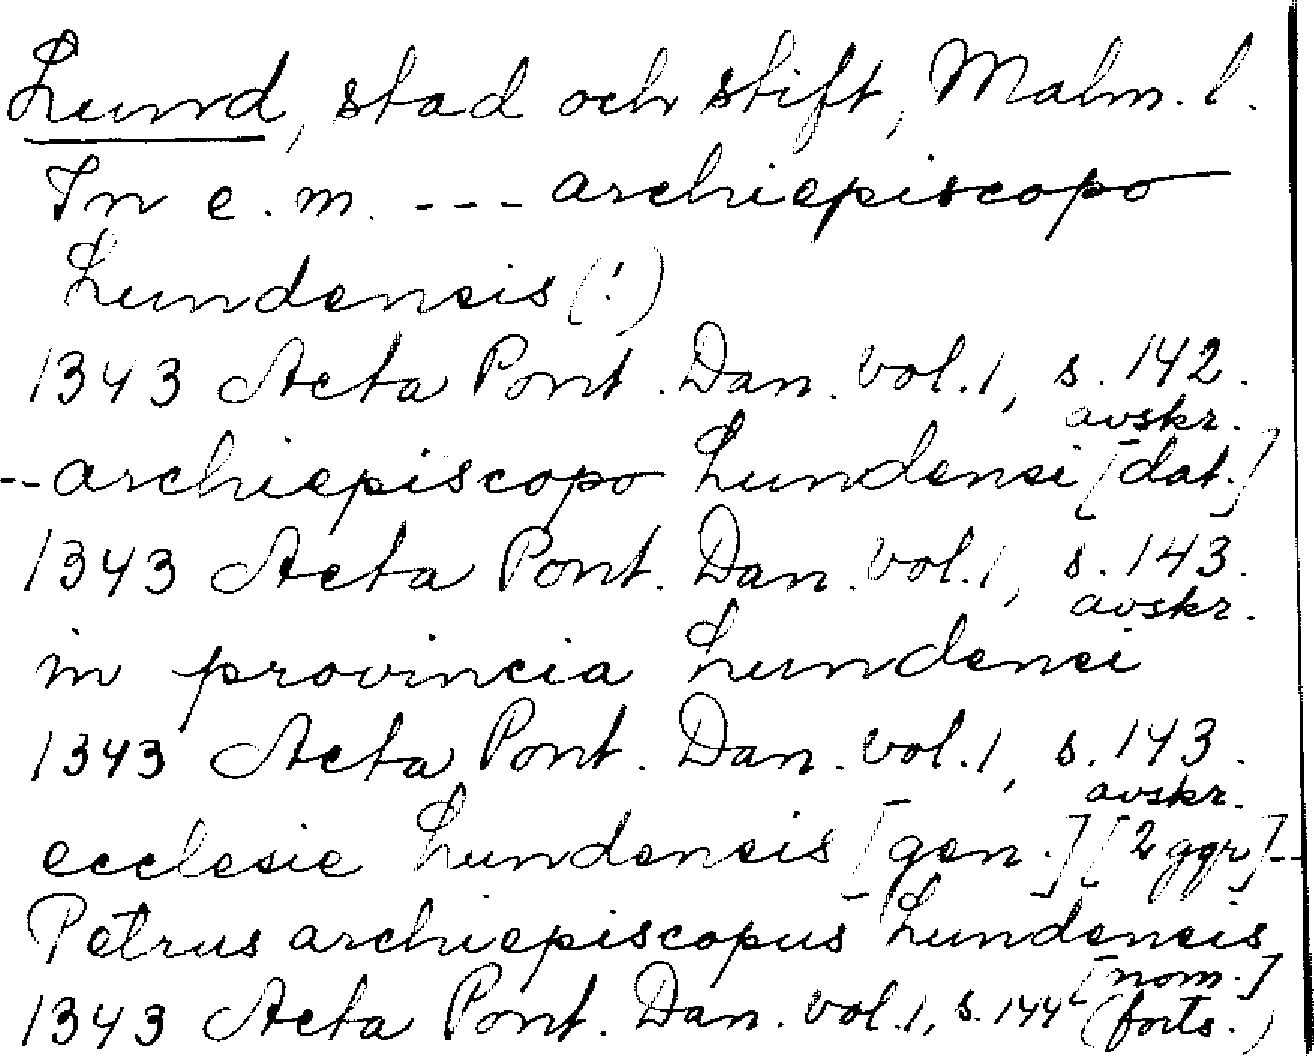 Lund, stad och stift, Malm. l.
In e. m. --- archiepiscopo
Lundensis (!)
1343 Acta Pont. Dan. vol. 1, s. 142.
avskr.
-- archiepiscopo Lundensi [dat.]
1343 Acta Pont. Dan. vol. 1, s. 143.
avskr.
in provincia Lundensi
1343 Acta Pont. Dan. vol. 1, s. 143.
avskr.
ecclesie Lundensis [gen.] [2 ggr] --
Petrus archiepiscopus Lundensis
[nom.]
1343 Acta Pont. Dan. vol. 1, s. 144 (forts.)